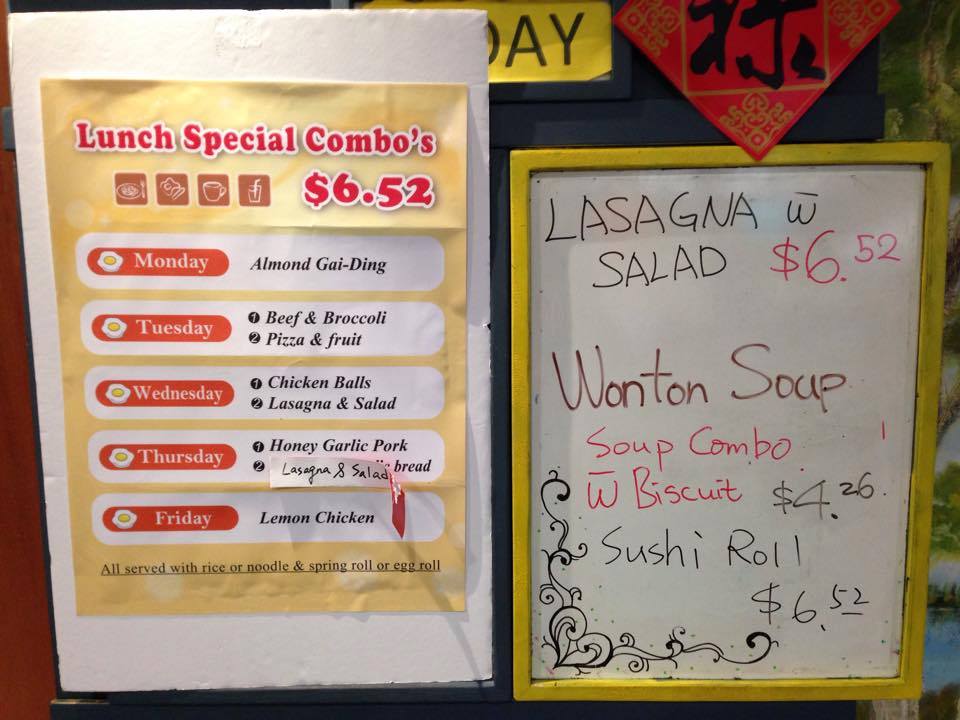 DAY
Lunch Special Combo's
$6.52
Monday Almond Gai-Ding
Tuesday ❶ Beef & Broccoli
❷ Pizza & fruit
Wednesday ❶ Chicken Balls
❷ Lasagna & Salad
Thursday ❶ Honey Garlic Pork
❷ Lasagna & Salad bread
Friday Lemon Chicken
All served with rice or noodle & spring roll or egg roll
LASAGNA w̄
SALAD $6.52
Wonton Soup
Soup Combo
w̄ Biscuit $4.26
Sushi Roll
$6.52